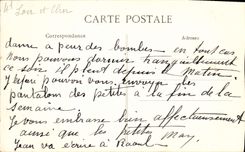 Loir et Cher
CARTE POSTALE
Correspondance
Adresse
dame a peur des bombes en tout cas
nous pouvons dormir tranquillement
ce soir il pleut depuis ce Matin.
J'espère pouvoir vous envoyer les
pantalons des petites à la fin de la
semaine.
Je vous embrasse bien affectueusement
ainsi que les petites May.
Jean va écrire à Raoul